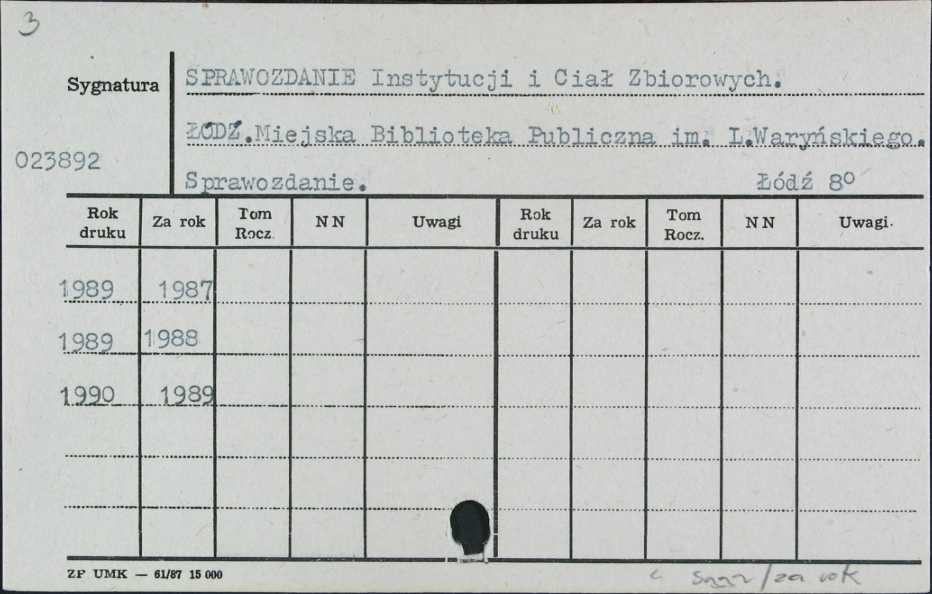 3
Sygnatura
SPRAWOZDANIE Instytucji i Ciał Zbiorowych.
ŁÓDŹ.Miejska Biblioteka Publiczna im. L.Waryńskiego.
023892
Sprawozdanie. Łódź 8º
Rok druku Za rok Tom Rocz. N N Uwagi Rok druku Za rok Tom Rocz. N N Uwagi.
1989 1987
1989 1988
1990 1989
ZP UMK — 61/87 15 000
/za rok